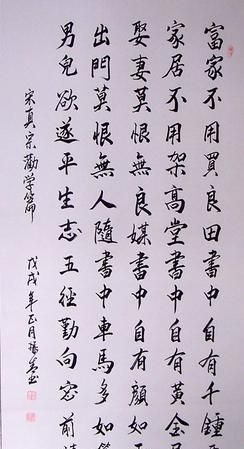 富家不用買良田書中自有千鍾
家居不用架高堂書中自有黃金
娶妻莫恨無良媒書中自有顏如
出門莫恨無人隨書中車馬多如
男兒欲遂平生志五經勤向窓前
宋真宗勸学篇 戊戌年正月